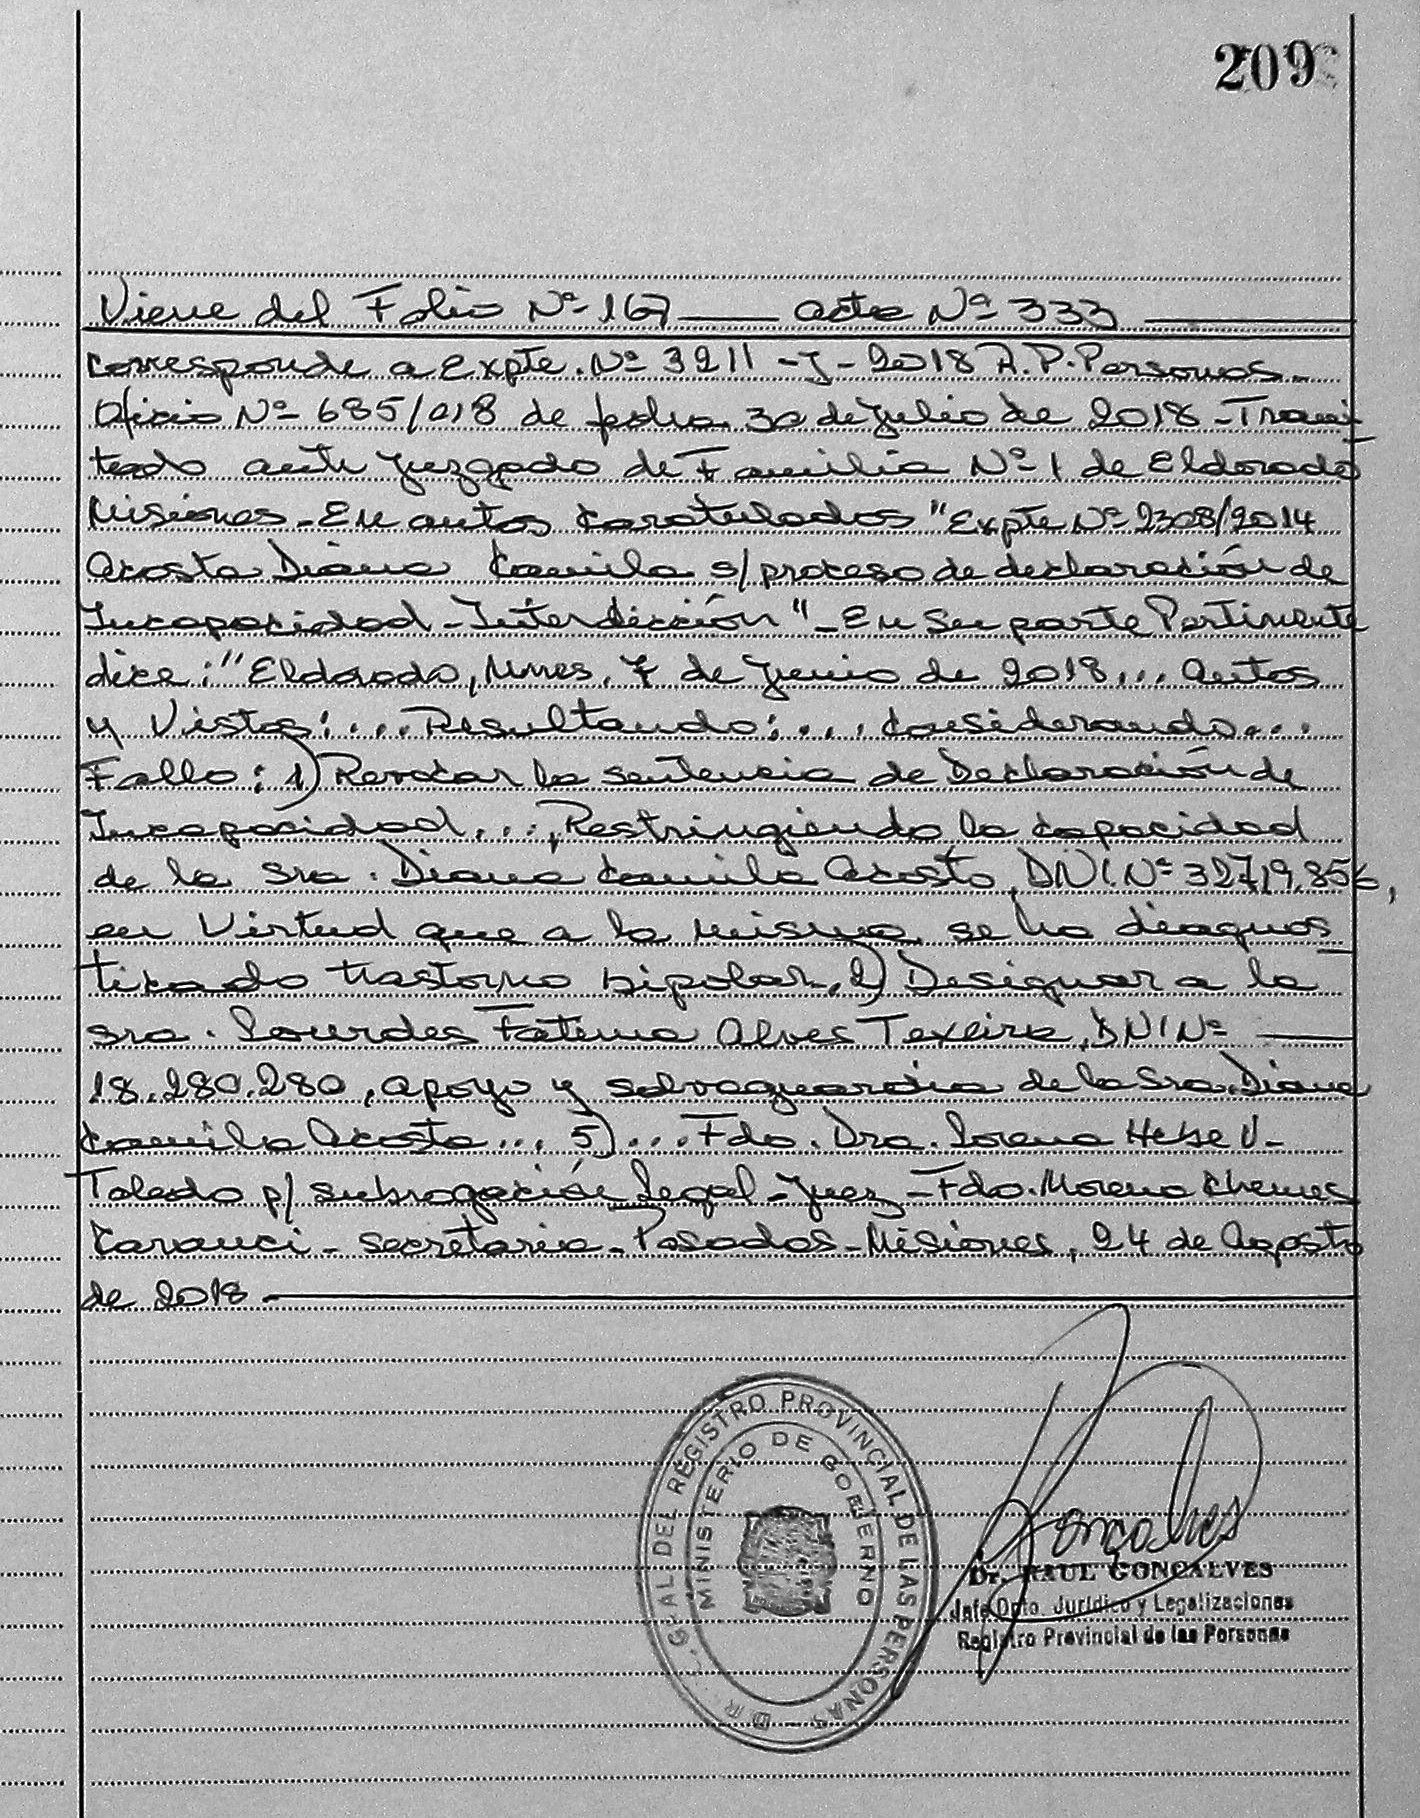 209
Viene del Folio Nº 167 — acta Nº 333 —
Corresponde a Expte. Nº 3211 - J - 2018 R.P. Personas -
Oficio Nº 685/018 de fecha 30 de Julio de 2018 - Trami
tado ante Juzgado de Familia Nº 1 de Eldorado
Misiones - En autos Caratulados "Expte Nº 2308/2014
Acosta Diana Camila s/ proceso de declaración de
Incapacidad - Interdicción" - En su parte Pertinente
dice: "Eldorado, Mnes, 7 de Junio de 2018... Autos
y Vistos: ... Resultando: ... Considerando...
Fallo: 1) Revocar la sentencia de Declaración de
Incapacidad..., Restringiendo la capacidad
de la Sra. Diana Camila Acosta, DNI. Nº 32.719.856,
en Virtud que a la misma se ha diagnos
ticado trastorno bipolar, 2) Designar a la
Sra. Lourdes Fatima Alves Texeira, DNI Nº —
18.280.280, apoyo y salvaguardia de la Sra. Diana
Camila Acosta ... 5) ... Fdo. Dra. Lorena Hebe V-
Toledo p/ subrogación Legal - Juez - Fdo. Morena Chemes
Caranci - Secretaria - Posadas - Misiones, 24 de Agosto
de 2018 —
GRAL DEL REGISTRO PROVINCIAL DE LAS PERSONAS
MINISTERIO DE GOBIERNO
Gonçalves
Dr. RAUL GONCALVES
Jefe Dpto. Jurídico y Legalizaciones
Registro Provincial de las Personas